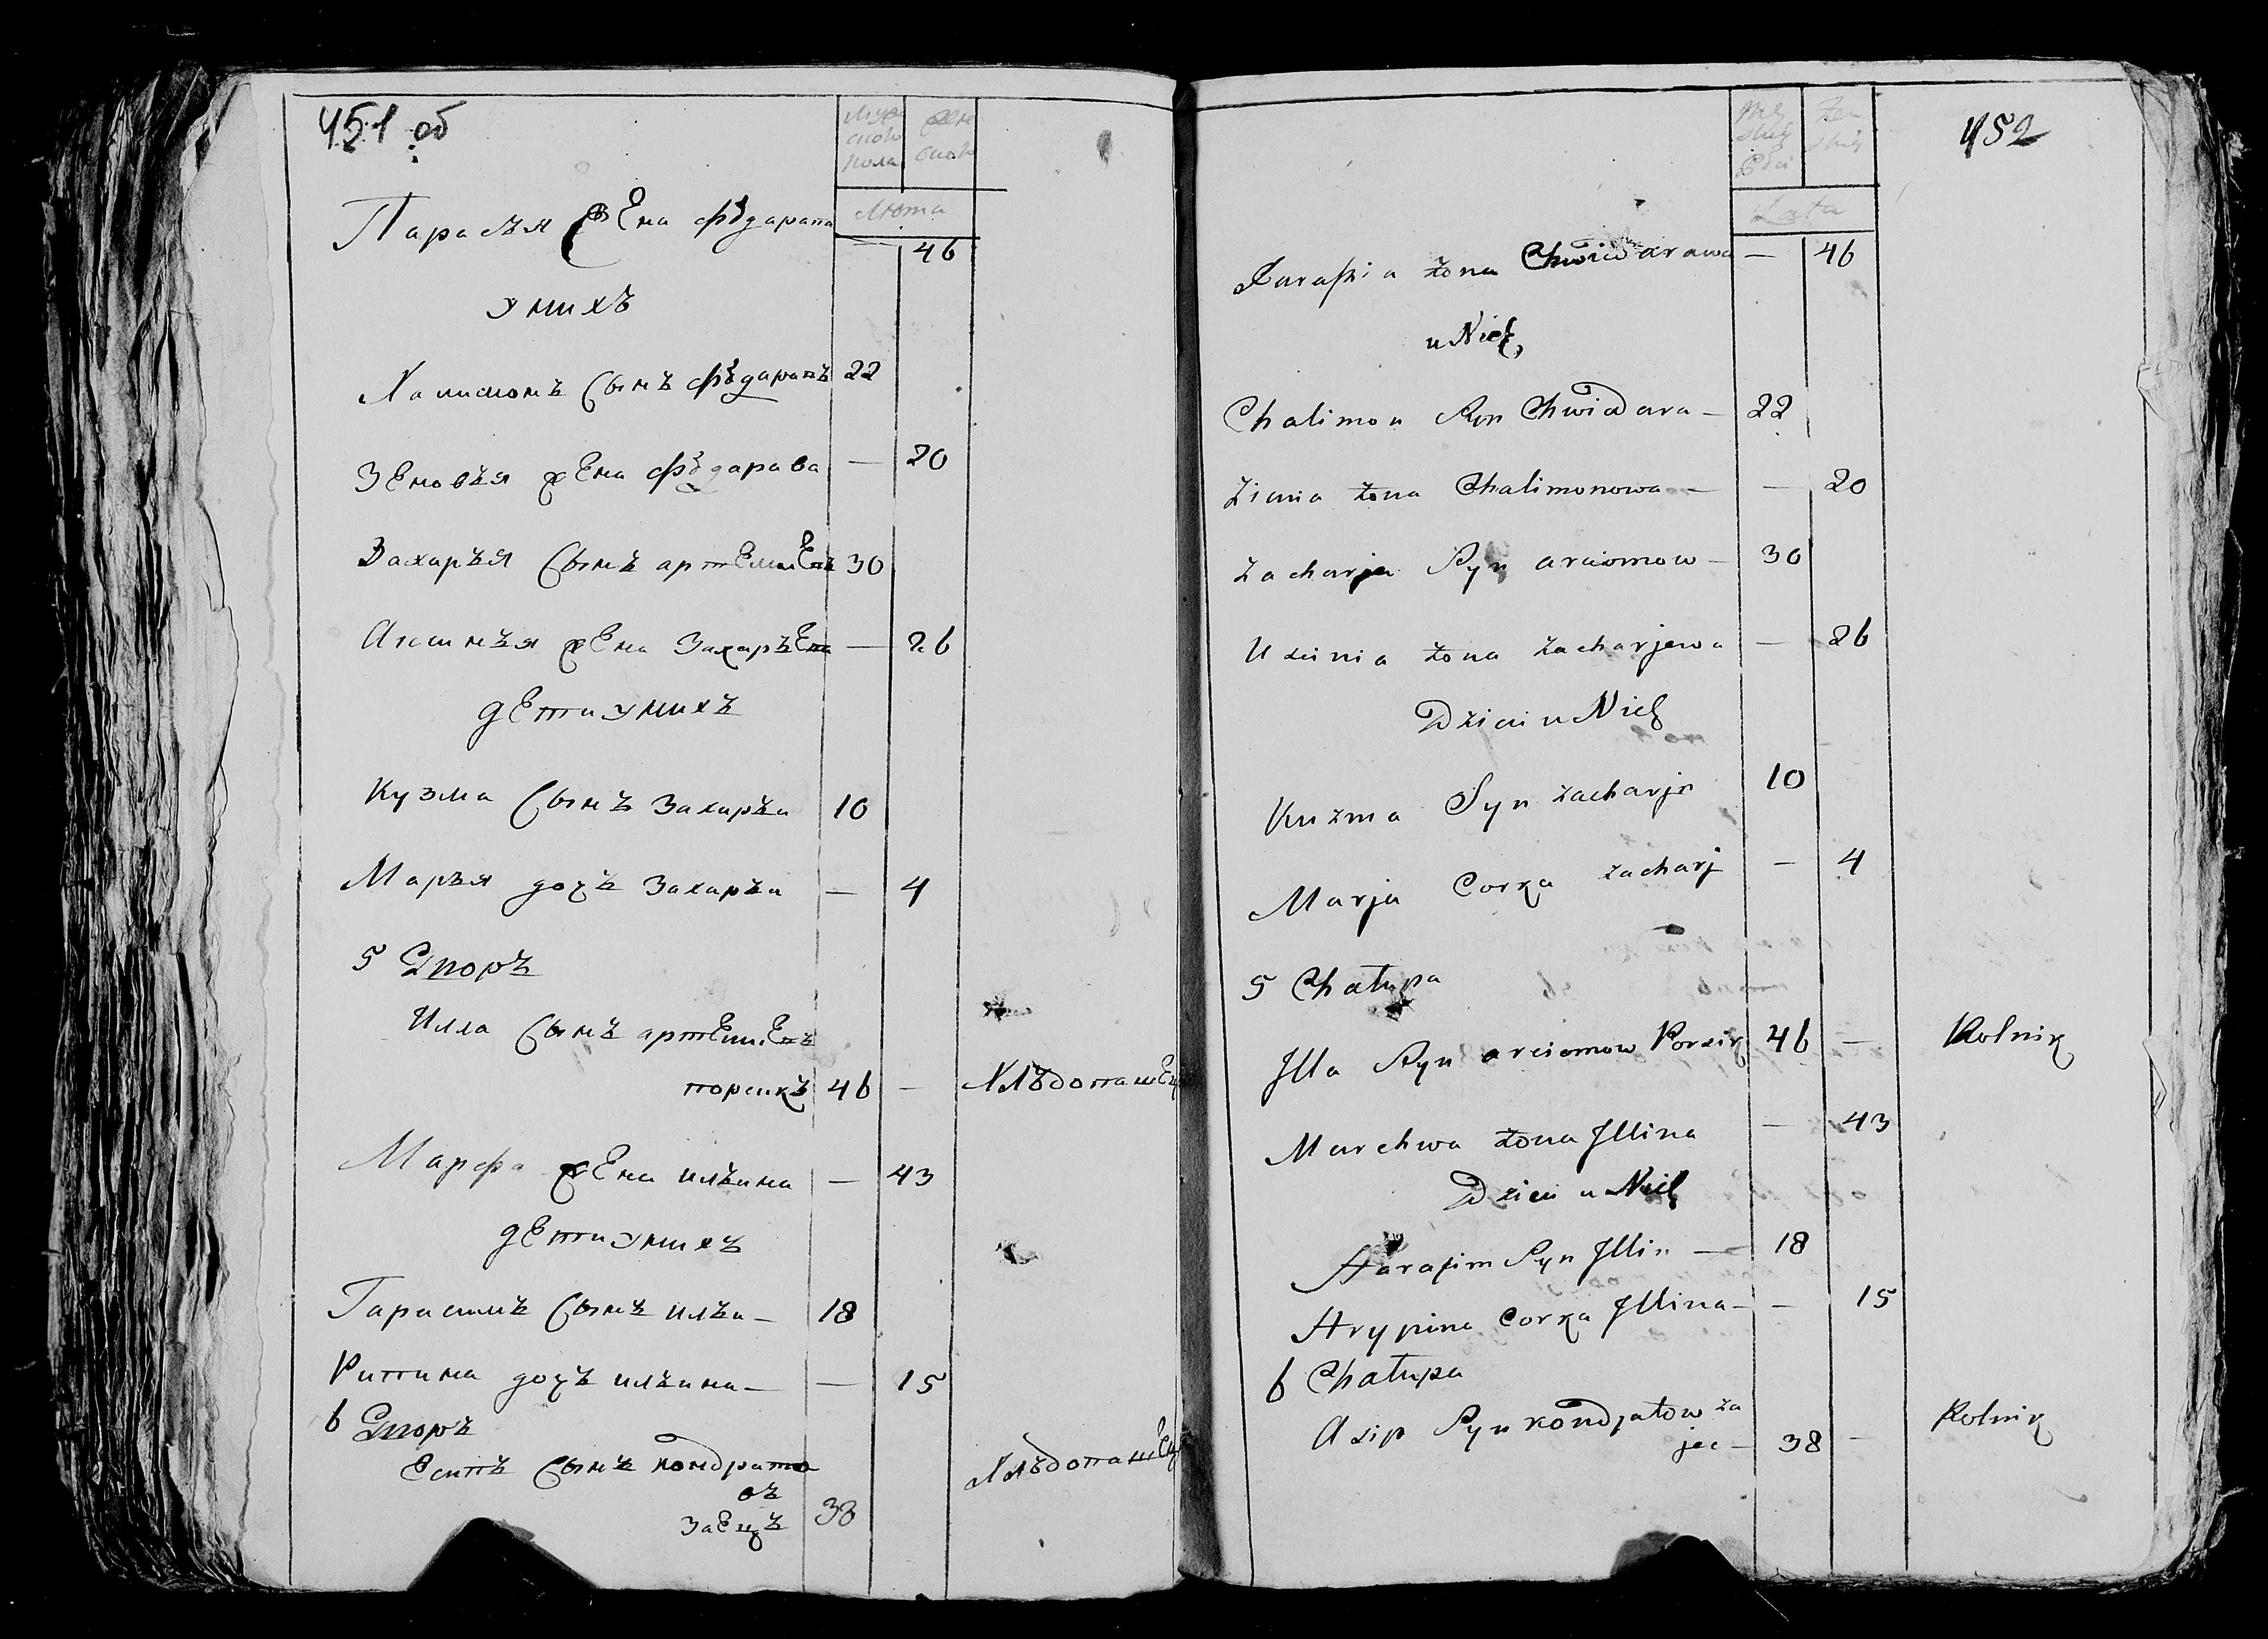 451 об
Муж
ского
пола
Женского
Лѣта
Парасъя жена фѣдарава — 46
у нихъ
Халимонъ сынъ фѣдаравъ 22
Зеновъя жена фѣдарава — 20
Захаръя сынъ артемьевъ 30
Аксинъя жена Захаръева — 26
дети у нихъ
Кузма сынъ Захаръи 10
Маръя дочъ Захаръи — 4
5 Дворъ
Илла сынъ артемьевъ
порсикъ 46 — Хлѣбопашец
Марфа жена илъина — 43
дети у нихъ
Гарасимъ сынъ илъи — 18
Рипина дочъ илъина — — 15
6 Дворъ
Есипъ сынъ кондрато
въ
Заецъ 38 Хлѣбопашец
452
Lata
Paraskia żona Chwiedarawa — 46
u Nich
Chalimon Syn Chwiedara — 22
Zienia żona Chalimonowa — — 20
Zacharja Syn arciomow — 30
Uxinia żona Zacharjewa — 26
Dzieci u Nich
Kuzma Syn Zacharja 10
Marja Corka Zacharj — 4
5 Chatupa
Jlla Syn arciomow Porsik 46 — Rolnik
Marchwa żona Jllina — 43
Dzieci u Nich
Harasim Syn Jllin — 18
Hrypina Corka Jllina — — 15
6 Chatupa
Asip Syn kondjatow za
jec — 38 — Rolnik